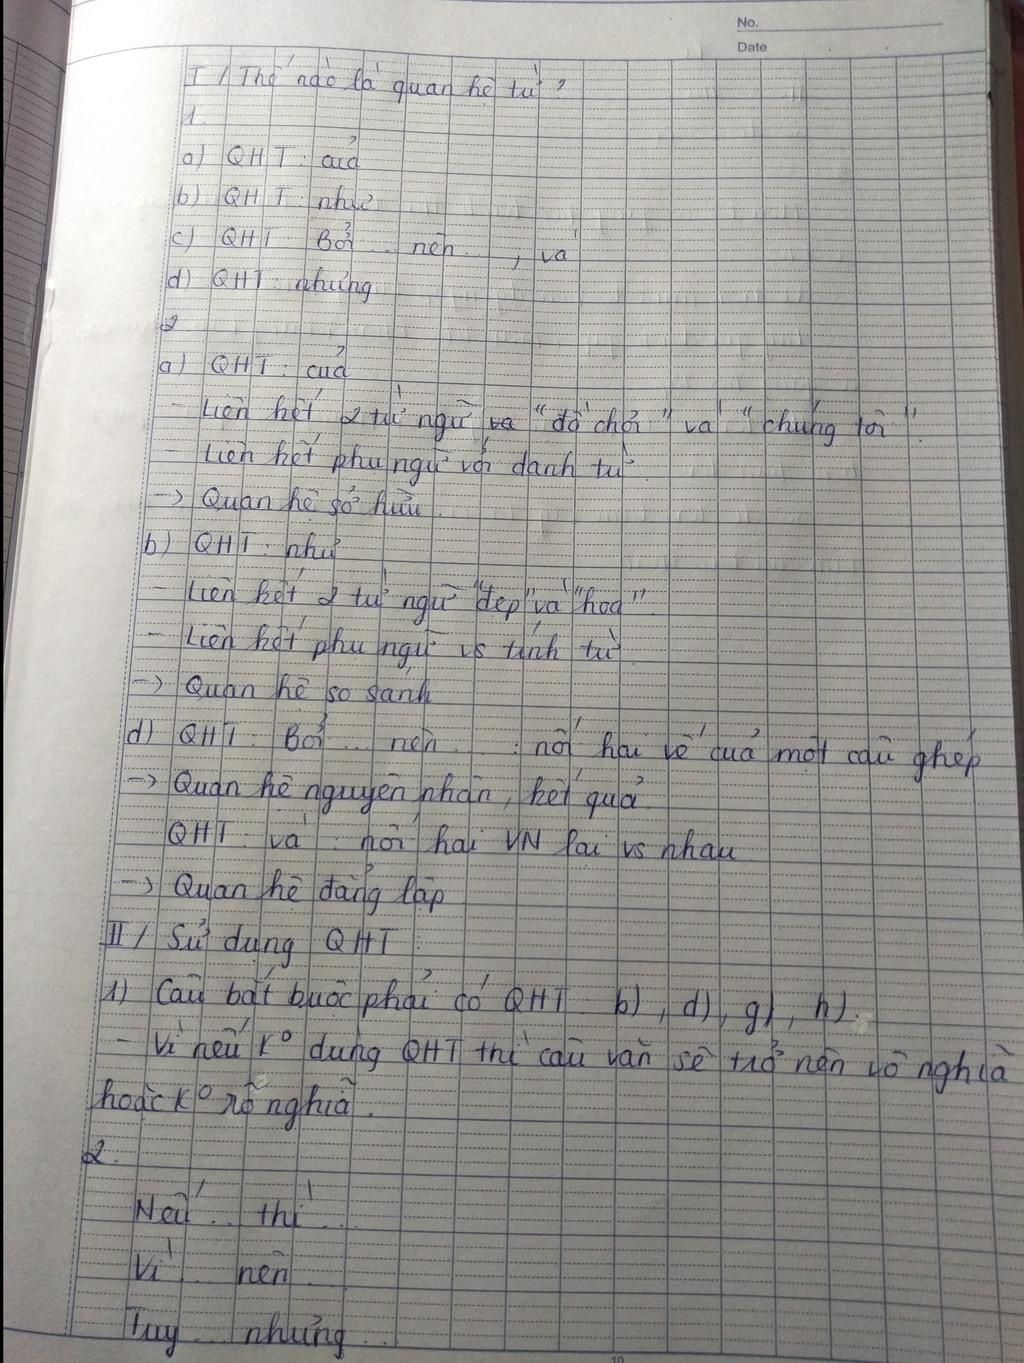 No.
Date
I / Thế nào là quan hệ từ ?
1.
a) QHT : của
b) QHT : như
c) QHT : Bởi ... nên ... , và
d) QHT : nhưng
2
a) QHT : của
- Liên kết 2 từ ngữ "đồ chơi" và "chúng tôi".
- Liên kết phụ ngữ với danh từ
-> Quan hệ sở hữu
b) QHT : như
- Liên kết 2 từ ngữ "đẹp" và "hoa"
- Liên kết phụ ngữ vs tính từ
-> Quan hệ so sánh
d) QHT : Bởi ... nên ... : nối hai vế của một câu ghép
-> Quan hệ nguyên nhân, kết quả.
QHT và : nối hai VN lại vs nhau
-> Quan hệ đẳng lập
II / Sử dụng QHT :
1) Câu bắt buộc phải có QHT b), d), g), h).
- Vì nếu Kº dùng QHT thì câu văn sẽ trở nên vô nghĩa
hoặc Kº rõ nghĩa.
2.
Nếu ... thì ...
Vì ... nên ...
Tuy ... nhưng ...
10